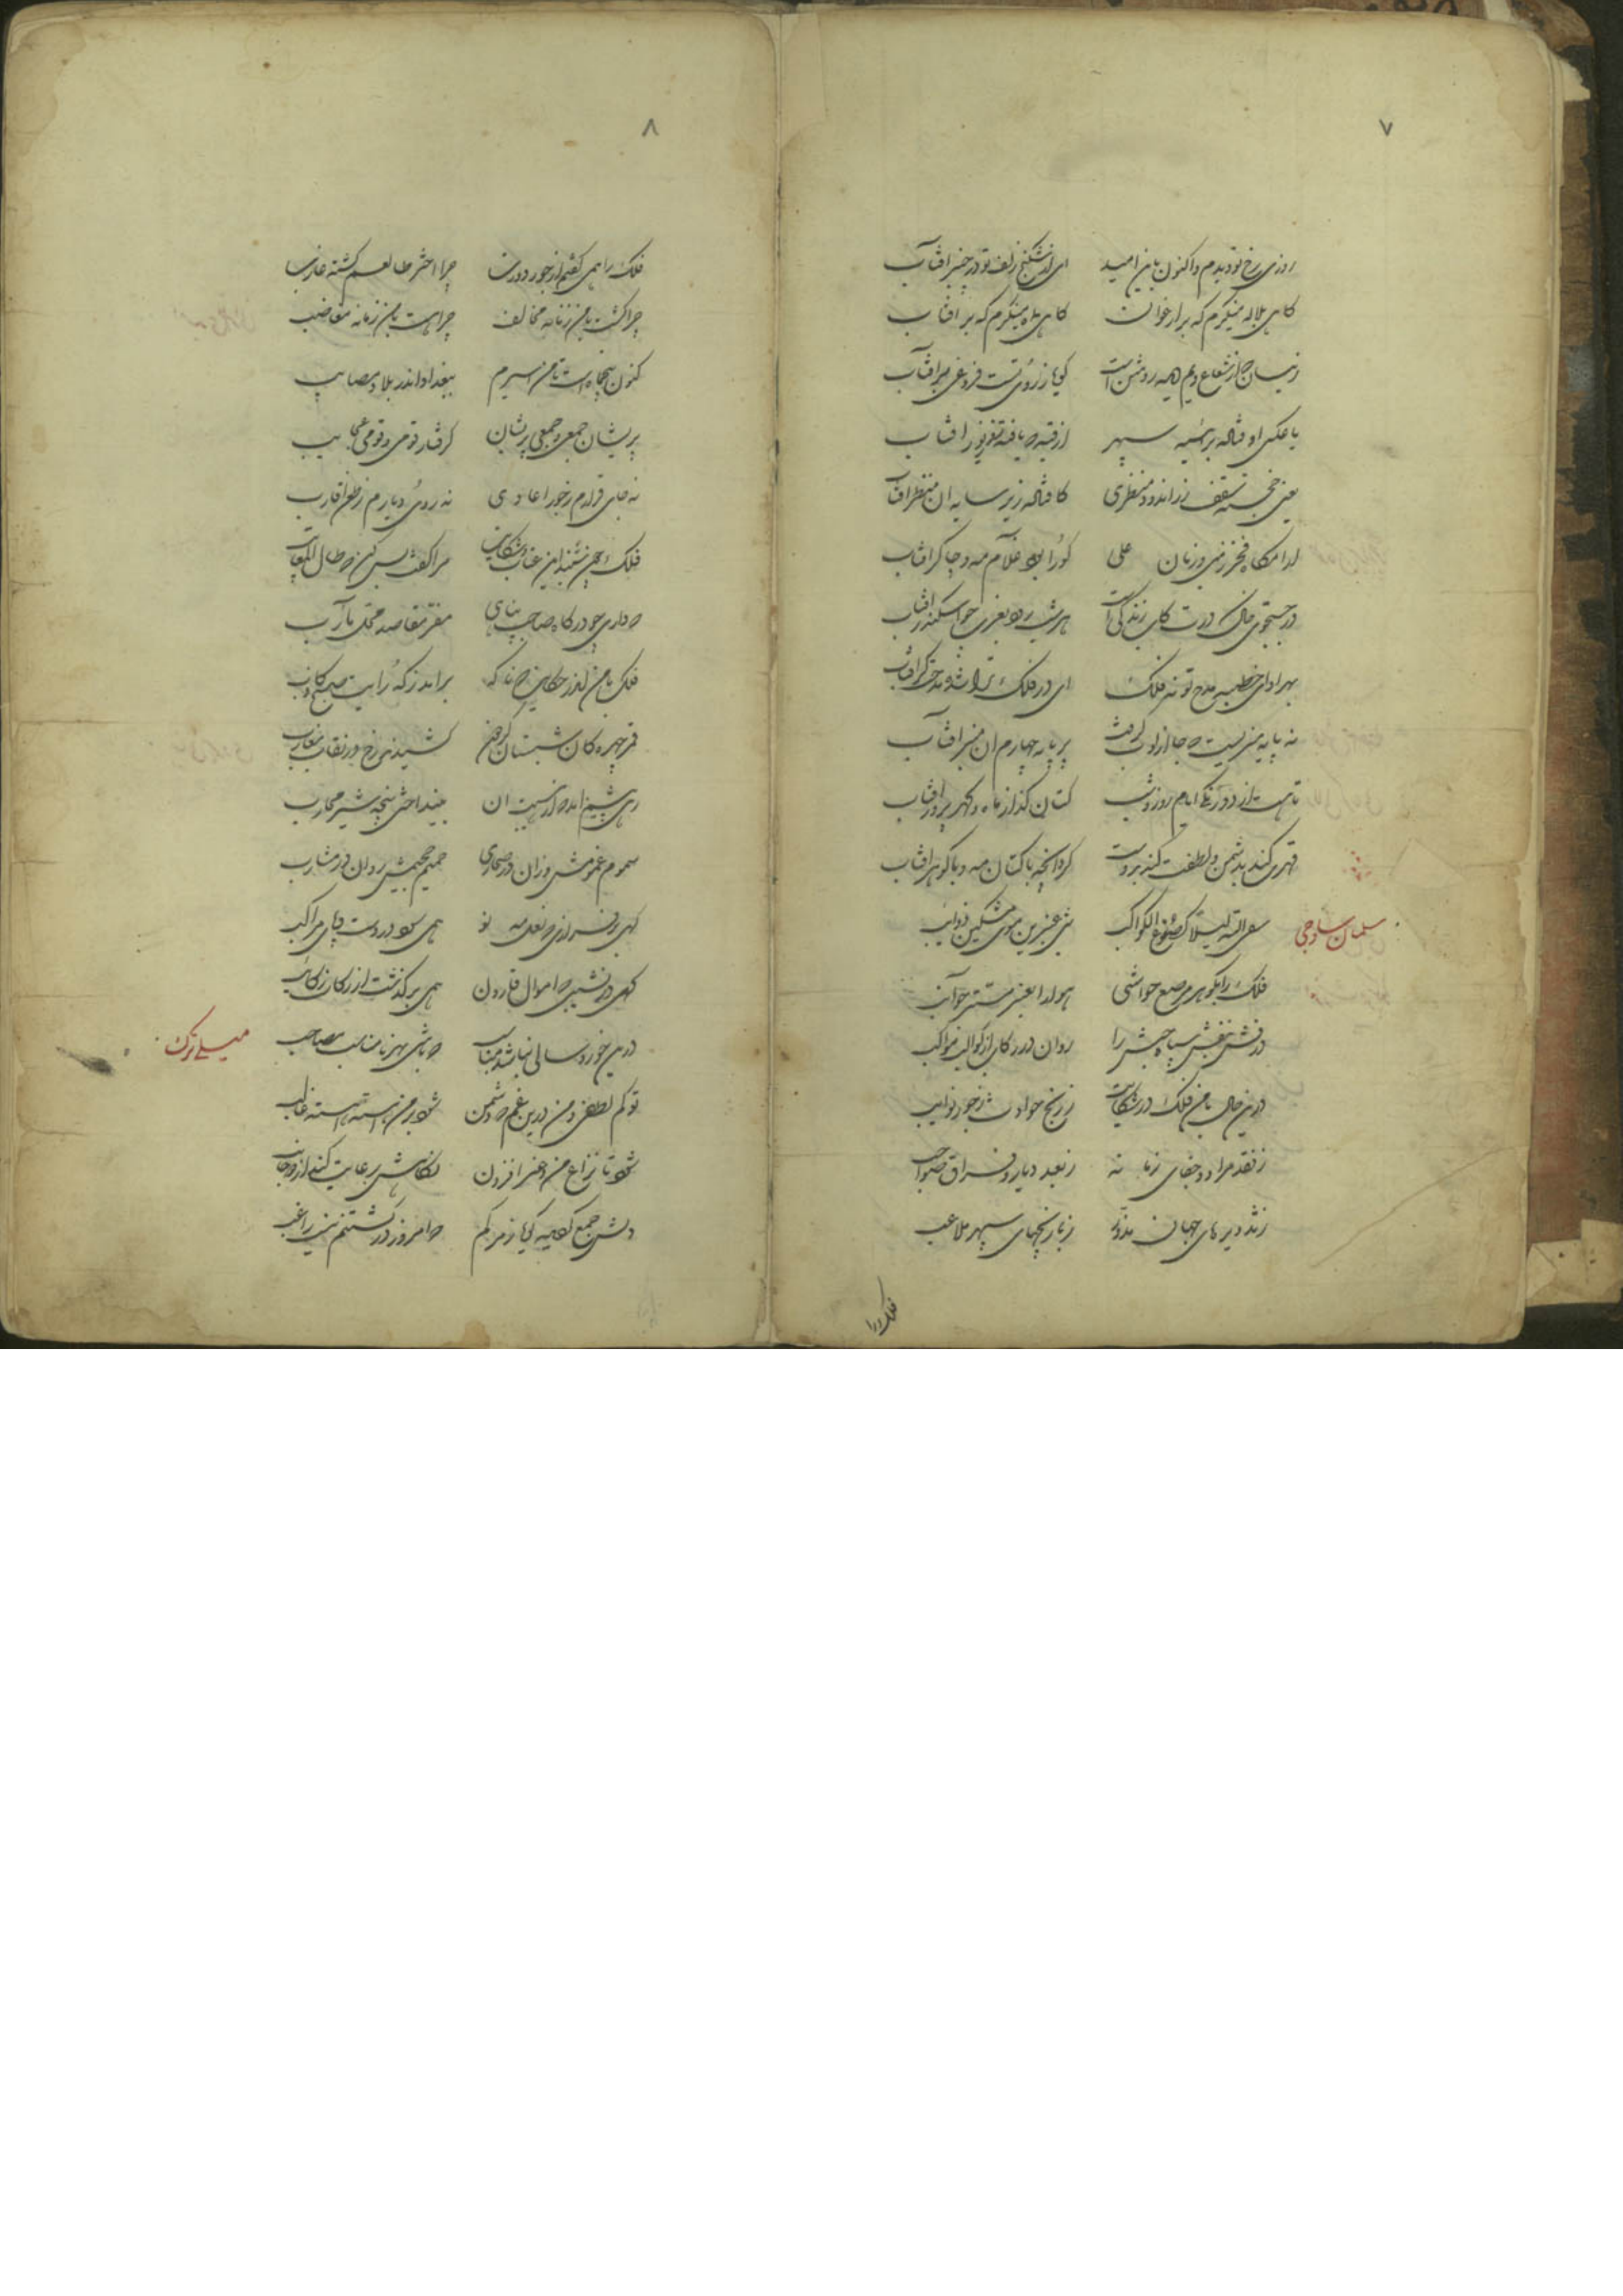 ۷
روزی رخ تو دیدم و اکنون باین امید ای از شکنج زلف تو در چنبر آفتاب
گاهی بلاله مینگرم که بر ارغوان گاهی بماه مینگرم که بر آفتاب
زینسان کز شعاع ویم همیه روشن است گویا ز روی تست فروغی بر آفتاب
یا عکس اوفتاده بر سپهر از قبه یافته زیور آفتاب
یعنی خجسته سقف زر اندود منظری کافتاده زیر سایه آن منظر آفتاب
فخر زمین و زمان علی کورا بود غلام مه و چاکر آفتاب
در جستجوی خاک درت کاب زندگی است هر شب رود بغرب چو اسکندر آفتاب
بهر ادای خطبه مدح تو نه فلک ای در فلک ترا شده مدحتگر آفتاب
نه پایه منبریست که جا از ادب گرفت بر پایه چهارم آن منبر آفتاب
تا هست از دو رنگی ایام روز و شب کتان گداز ماه و گهر پرور آفتاب
قهری کند بدشمن و لطفت کند بدوست کرد آنچه با کتان مه و با گوهر آفتاب
سلمان ساوجی
سقی الله لیلا کصدغ الکواکب شبی عنبرین موی مشکین ذوایب
فلک را بگوهر مرصع حواشی هوا را بعنبر مستر جوانب
درفش بنفش سپاه حبش را روان در رکاب از کواکب مواکب
درین حال با من فلک در شکایت ز رنج حوادث ز جور نوایب
ز فقد مراد و جفای زمانه ز بعد دیار و فراق صواحب
جهان مزور ز بازیچهای سپهر ملاعب
فلک را
۸
فلک را همی گفتم از جور دوران چرا اختر طالعم گشته غارب
چرا گشت با من زمانه مخالف چرا هست با من زمانه مغاضب
کنون پنجماهست تا من اسیرم ببغداد اندر بلا و مصایب
پریشان جمعی و جمعی پریشان گرفتار قومی و قومی عجایب
نه جای قرارم ز جور اعادی نه روی دیارم ز طعن اقارب
فلک چون شنید این عتاب و شکایت مرا گفت بس کن که طال المعاتب
که داری چو درگاه صاحب پناهی مقر مقاصد محل مآرب
فلک با من اندر حکایت که ناگه برآمد ز که رایت صبح کاذب
قمر چهره کان شبستان گردون کشیدند رخ در نقاب مغارب
بینداختی پنجه شیر محارب
سموم غمومش وزان در صحاری حمیم جحیمش روان در مشارب
گهی بر فرازی که نعل مه نو همی سود در دست و پای مراکب
گهی در نشیبی که اموال قارون همی برگذشت از رکاب رکایب
میلی ترک
درین خورد سالی نباشد مناسب که باشی بهر نامناسب مصاحب
تو کم لطفی و من درین غم که دشمن شود بر من آهسته آهسته غالب
شود تا نزاع من و غیر افزون نگاهش رعایت کند از دو جانب
دلش جمع گویا ز مرگم که امروز در کشتنم نیست راغب